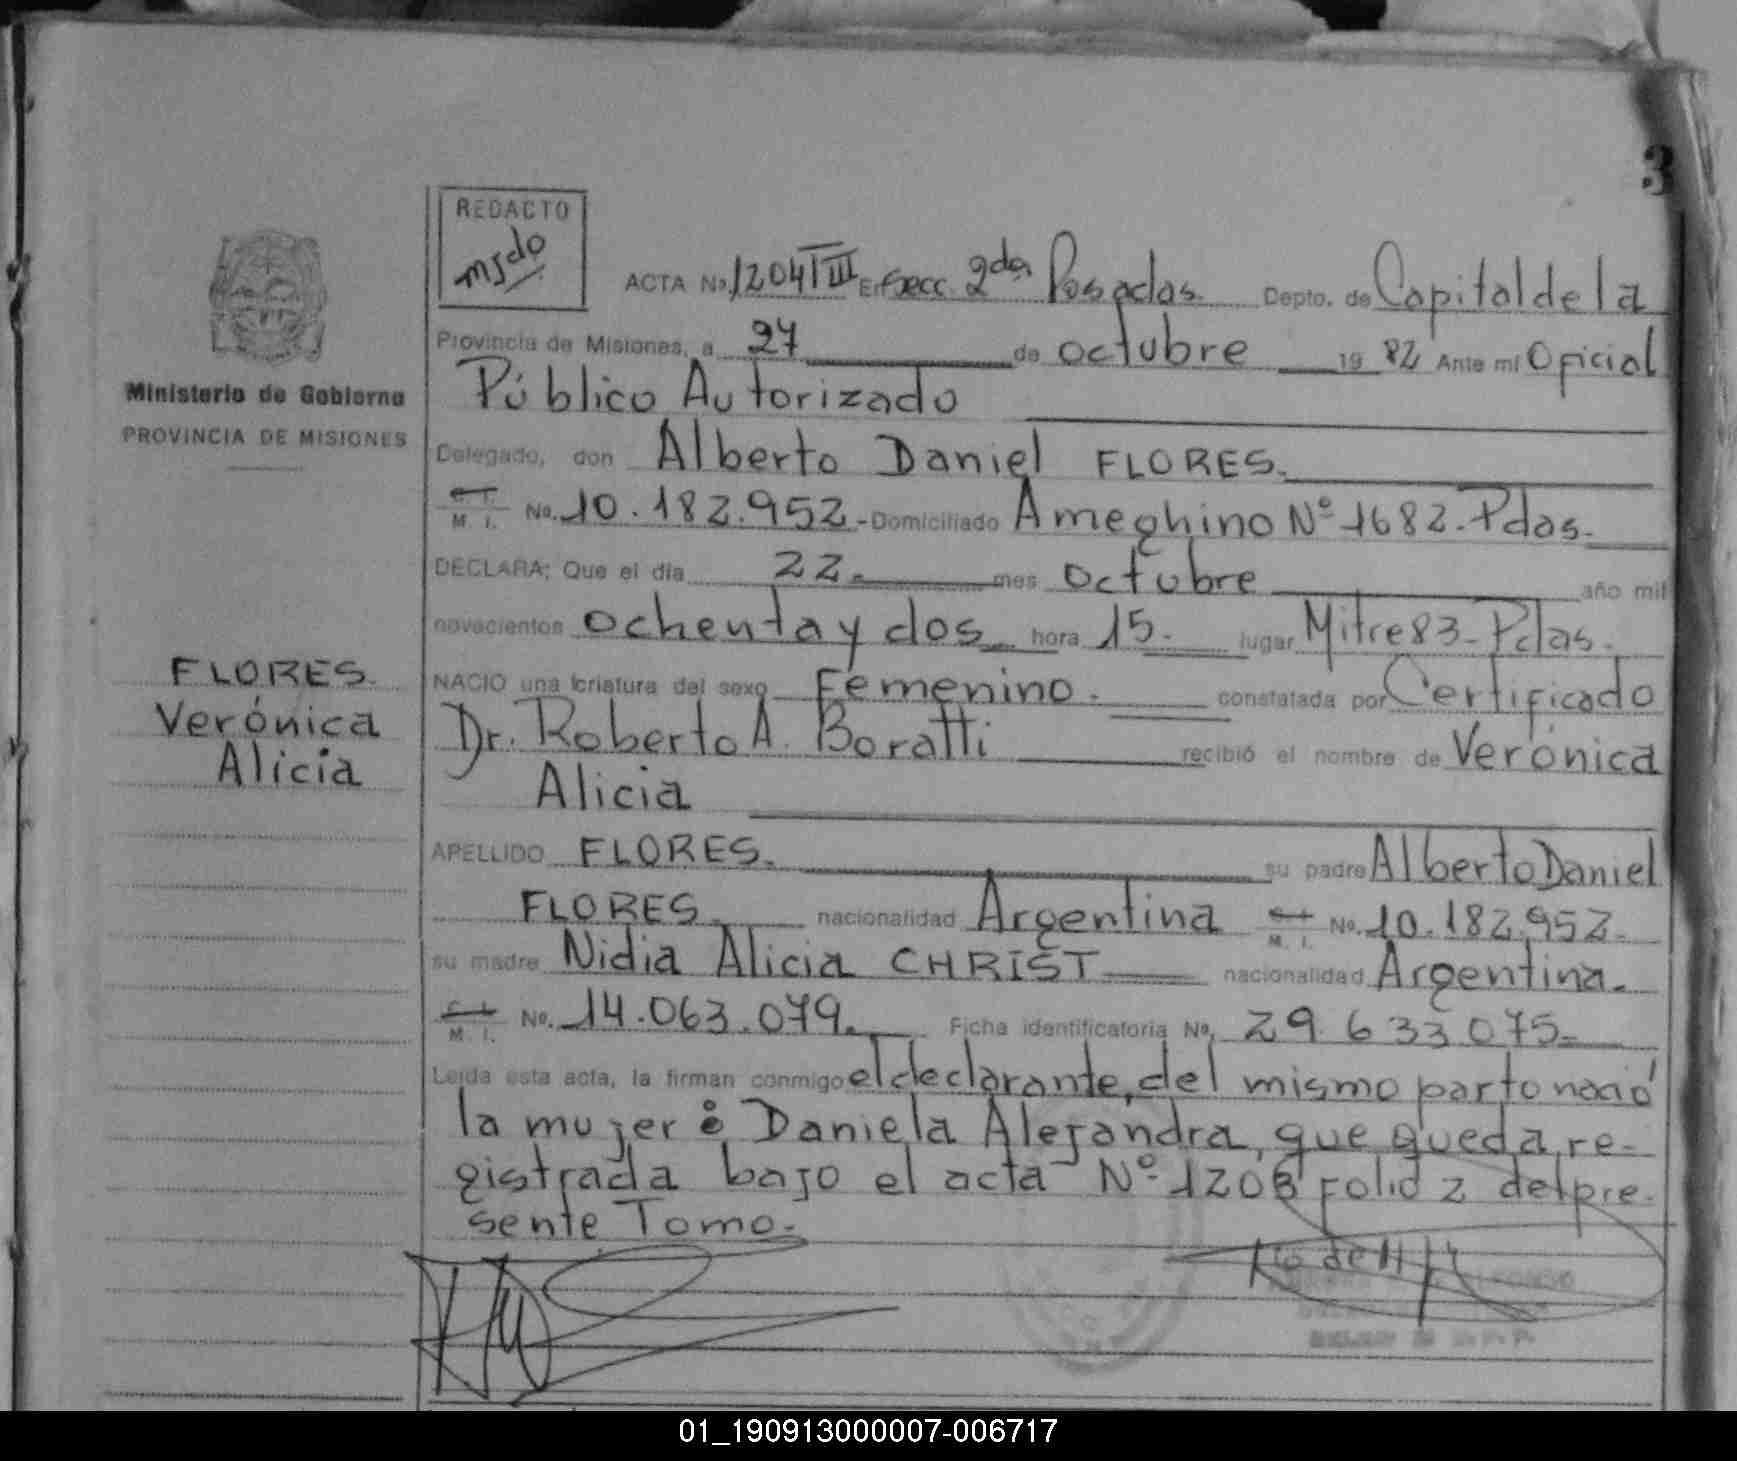 3
REDACTO
msdo
ACTA No. 1204 T III En Secc. 2da Posadas. Depto. de Capital de la
Provincia de Misiones, a 27 de octubre 19 82 Ante mi Oficial
Público Autorizado
Delegado, don Alberto Daniel FLORES.
M. I. No. 10.182.952.- Domiciliado Ameghino Nº 1682. Pdas.
DECLARA: Que el día 22. mes octubre año mil
novecientos ochenta y dos hora 15. lugar Mitre 83- Pdas.
NACIO una criatura del sexo Femenino. constatada por Certificado
Dr. Roberto A. Boratti recibió el nombre de Verónica
Alicia
APELLIDO FLORES. su padre Alberto Daniel
FLORES. nacionalidad Argentina M. I. No. 10.182.952.
su madre Nidia Alicia CHRIST nacionalidad Argentina.
M. I. No. 14.063.079. Ficha identificatoria No. 29.633075-
Leída esta acta, la firman conmigo el declarante, del mismo parto nació
la mujer: Daniela Alejandra, que queda re-
gistrada bajo el acta Nº 1203 Folio 2 del pre-
sente Tomo.
Ministerio de Gobierno
PROVINCIA DE MISIONES
FLORES.
Verónica
Alicia
01_190913000007-006717